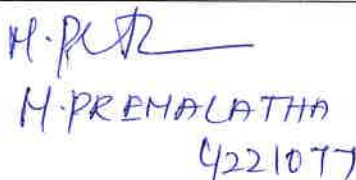 M.PREMALATHA
4221077